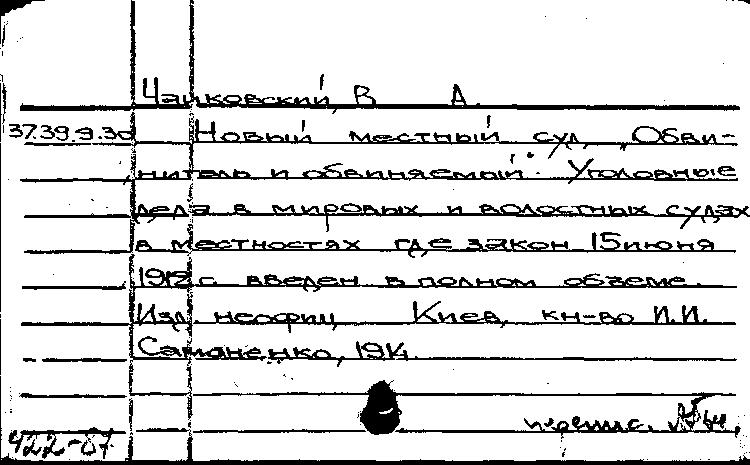 Чайковский, В. А.
37.39.9.30 Новый местный суд. „Обви-
нитель и обвиняемый“. Уголовные
дела в мировых и волостных судах
в местностях где закон 15 июня
1912 г. введен в полном объеме.
Изд. неофиц. Киев, кн-во И.И.
Самоненко, 1914.
422-87